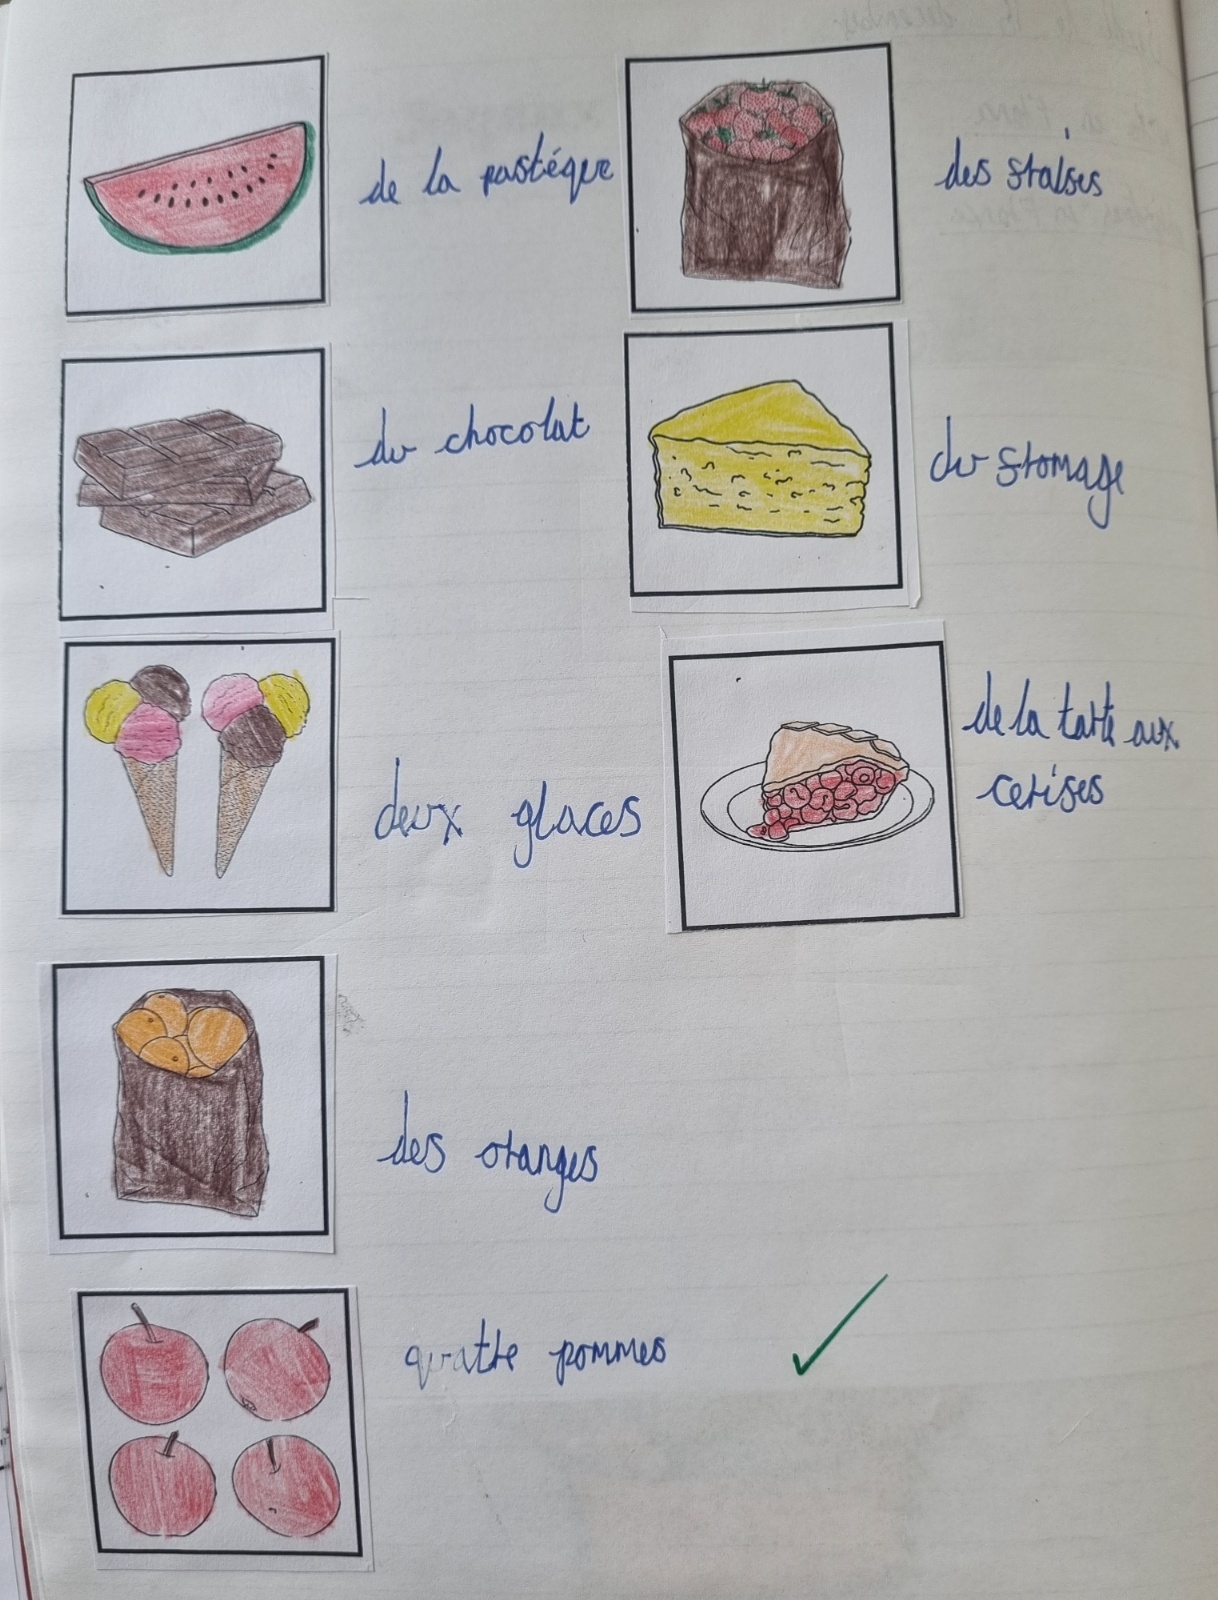 de la pastéque
des fraises
du chocolat
du fromage
deux glaces
de la tarte aux
cerises
des oranges
quatre pommes